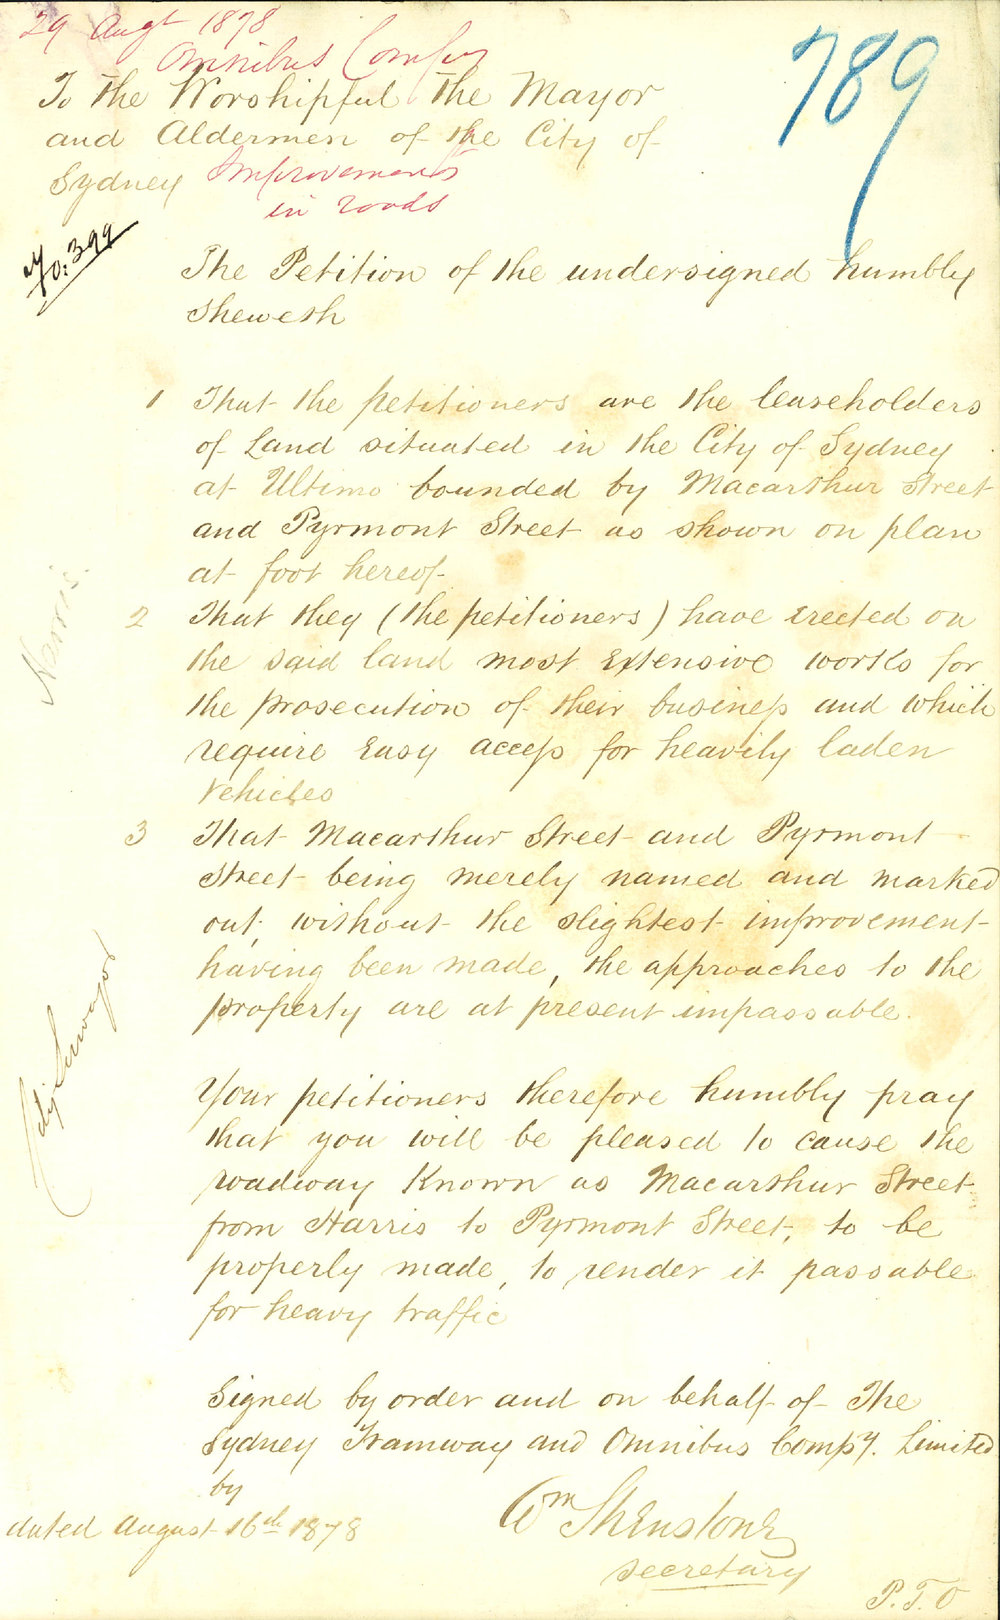 29 Augt 1878
Omnibus Compy
789
To the Worshipful the Mayor
and Aldermen of the City of
Sydney
Improvements
in roads
No: 399
The Petition of the undersigned humbly
sheweth
1 That the petitioners are the leaseholders
of Land situated in the City of Sydney
at Ultimo bounded by Macarthur Street
and Pyrmont Street as shown on plan
at foot hereof.
2 That they (the petitioners) have erected on
the said land most extensive works for
the prosecution of their business and which
require easy access for heavily laden
vehicles
3 That Macarthur Street and Pyrmont
Street being merely named and marked
out, without the slightest improvement
having been made, the approaches to the
property are at present impassable.
Your petitioners therefore humbly pray
that you will be pleased to cause the
roadway known as Macarthur Street
from Harris to Pyrmont Street, to be
properly made, to render it passable
for heavy traffic
Signed by order and on behalf of The
Sydney Tramway and Omnibus Compy. Limited
by
dated August 16th 1878
Wm Shenstone
secretary
P.T.O
City Surveyor